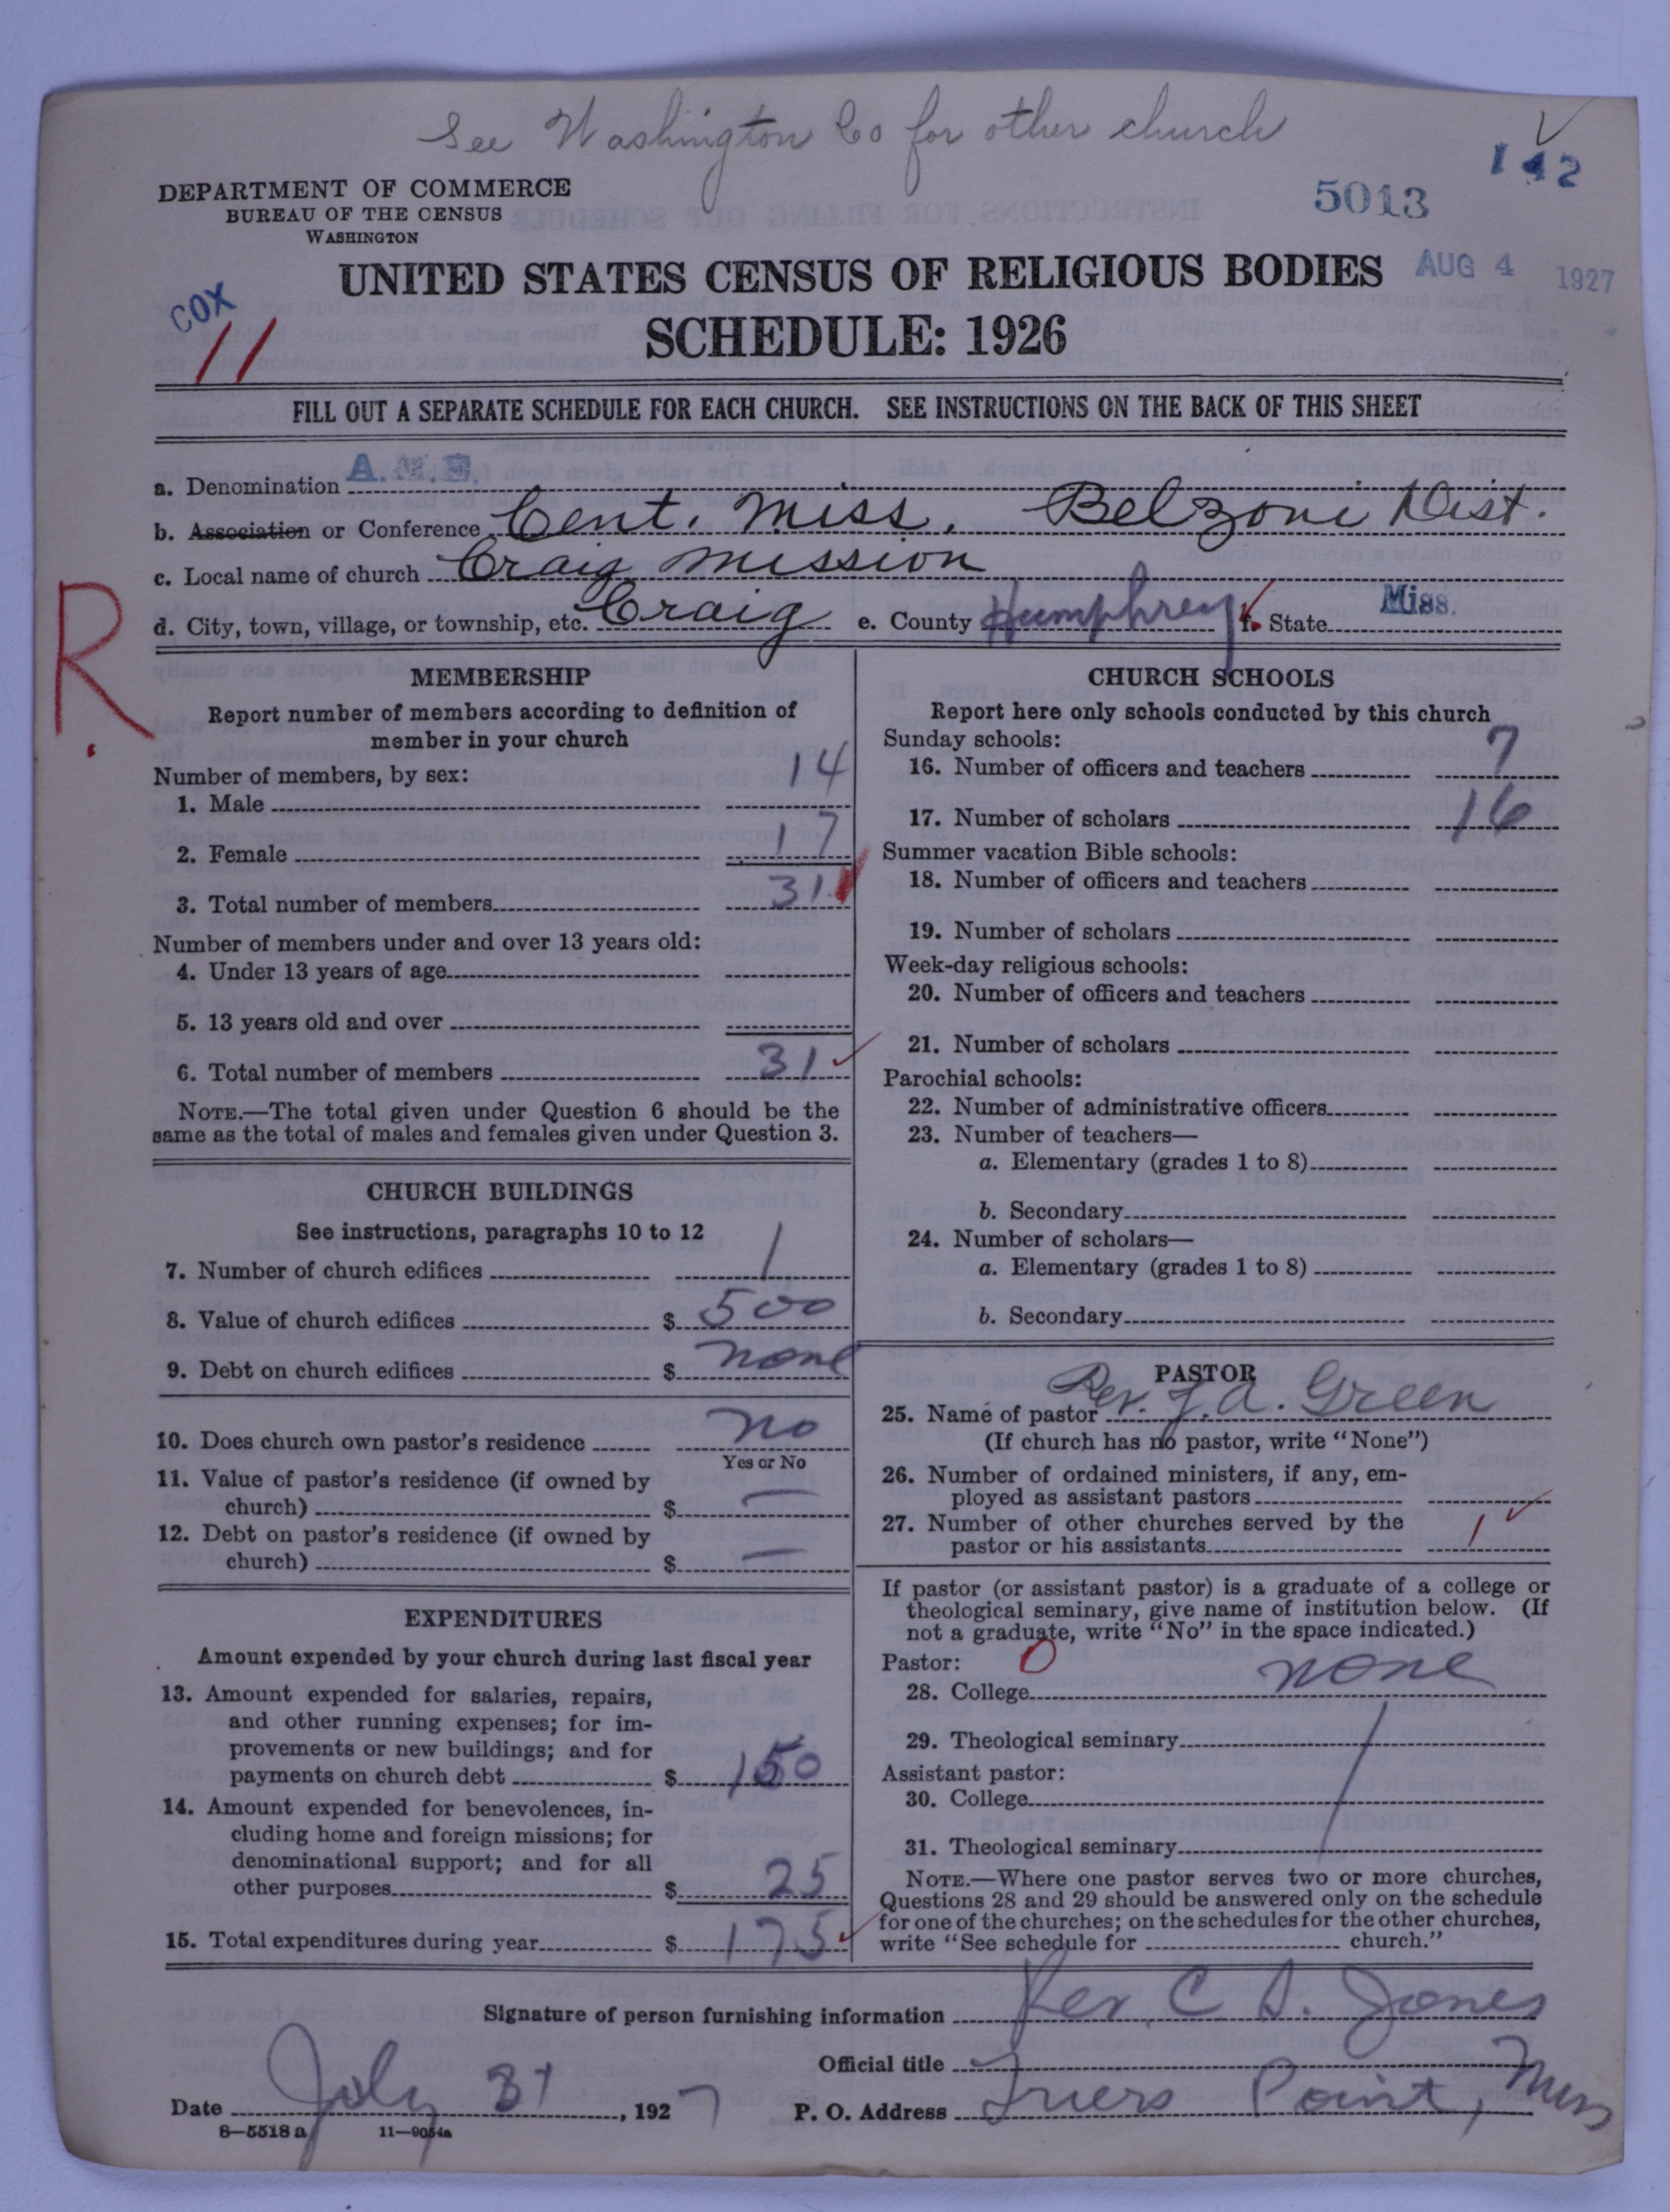 See Washington Co for other church
142
5013
DEPARTMENT OF COMMERCE
BUREAU OF THE CENSUS
WASHINGTON
UNITED STATES CENSUS OF RELIGIOUS BODIES
AUG 4 1927
COX
11
SCHEDULE: 1926
FILL OUT A SEPARATE SCHEDULE FOR EACH CHURCH. SEE INSTRUCTIONS ON THE BACK OF THIS SHEET
a. Denomination A.M.E.
b. Association or Conference Cent. Miss. Belzoni Dist.
c. Local name of church Craig Mission
d. City, town, village, or township, etc. Craig e. County Humphrey f. State Miss.
R.
MEMBERSHIP
Report number of members according to definition of
member in your church
Number of members, by sex:
1. Male 14
2. Female 17
3. Total number of members 31
Number of members under and over 13 years old:
4. Under 13 years of age
5. 13 years old and over
6. Total number of members 31
NOTE.—The total given under Question 6 should be the
same as the total of males and females given under Question 3.
CHURCH BUILDINGS
See instructions, paragraphs 10 to 12
7. Number of church edifices 1
8. Value of church edifices $ 500
9. Debt on church edifices $ none
10. Does church own pastor's residence no
Yes or No
11. Value of pastor's residence (if owned by
church) $ —
12. Debt on pastor's residence (if owned by
church) $ —
EXPENDITURES
Amount expended by your church during last fiscal year
13. Amount expended for salaries, repairs,
and other running expenses; for im-
provements or new buildings; and for
payments on church debt $ 150
14. Amount expended for benevolences, in-
cluding home and foreign missions; for
denominational support; and for all
other purposes $ 25
15. Total expenditures during year $ 175
CHURCH SCHOOLS
Report here only schools conducted by this church
Sunday schools:
16. Number of officers and teachers 7
17. Number of scholars 16
Summer vacation Bible schools:
18. Number of officers and teachers
19. Number of scholars
Week-day religious schools:
20. Number of officers and teachers
21. Number of scholars
Parochial schools:
22. Number of administrative officers
23. Number of teachers—
a. Elementary (grades 1 to 8)
b. Secondary
24. Number of scholars—
a. Elementary (grades 1 to 8)
b. Secondary
PASTOR
25. Name of pastor Rev. J. A. Green
(If church has no pastor, write "None")
26. Number of ordained ministers, if any, em-
ployed as assistant pastors
27. Number of other churches served by the
pastor or his assistants 1
If pastor (or assistant pastor) is a graduate of a college or
theological seminary, give name of institution below. (If
not a graduate, write "No" in the space indicated.)
Pastor: 0
28. College none
29. Theological seminary
Assistant pastor:
30. College
31. Theological seminary
NOTE.—Where one pastor serves two or more churches,
Questions 28 and 29 should be answered only on the schedule
for one of the churches; on the schedules for the other churches,
write "See schedule for church."
Signature of person furnishing information Rev. C. S. Jones
Official title
Date July 31, 1927 P. O. Address Point, Miss
8—5518 a 11—9054a